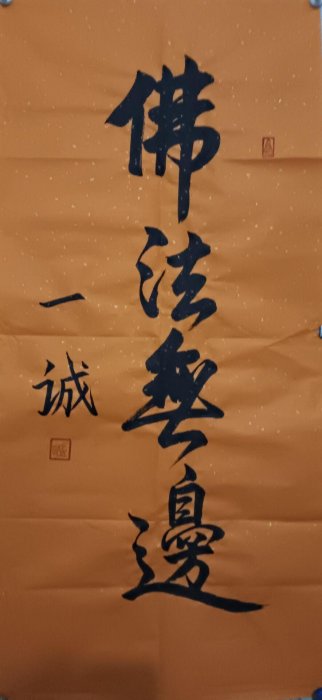 佛法無邊
一诚